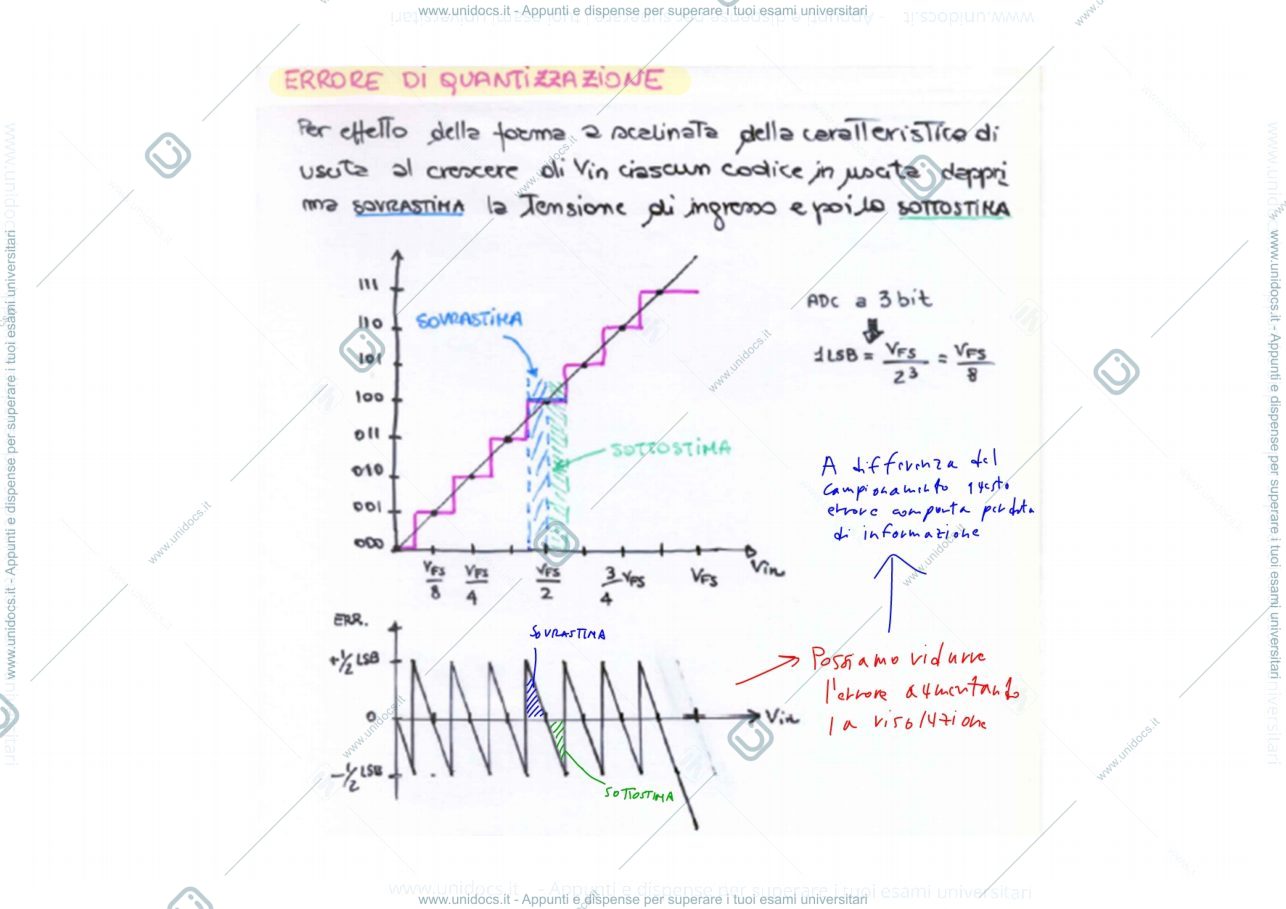 www.unidocs.it - Appunti e dispense per superare i tuoi esami universitari
ERRORE DI QUANTIZZAZIONE
Per effetto della forma a scalinata della caratteristica di
uscita al crescere di Vin ciascun codice in uscita dappri
ma SOVRASTIMA la Tensione di ingresso e poi la SOTTOSTIMA
111
110
101
100
011
010
001
000
SOVRASTIMA
SOTTOSTIMA
VFS/8
VFS/4
VFS/2
3/4 VFS
VFS
Vin
ADC a 3 bit
1LSB = VFS/2³ = VFS/8
A differenza del
campionamento questo
errore comporta perdita
di informazione
ERR.
+½ LSB
0
-½ LSB
SOVRASTIMA
SOTTOSTIMA
Vin
Possiamo ridurre
l'errore aumentando
la risoluzione
www.unidocs.it - Appunti e dispense per superare i tuoi esami universitari
www.unidocs.it - Appunti e dispense per superare i tuoi esami universitari
www.unidocs.it - Appunti e dispense per superare i tuoi esami universitari
www.unidocs.it
www.unidocs.it
www.unidocs.it
www.unidocs.it
www.unidocs.it
www.unidocs.it
www.unidocs.it